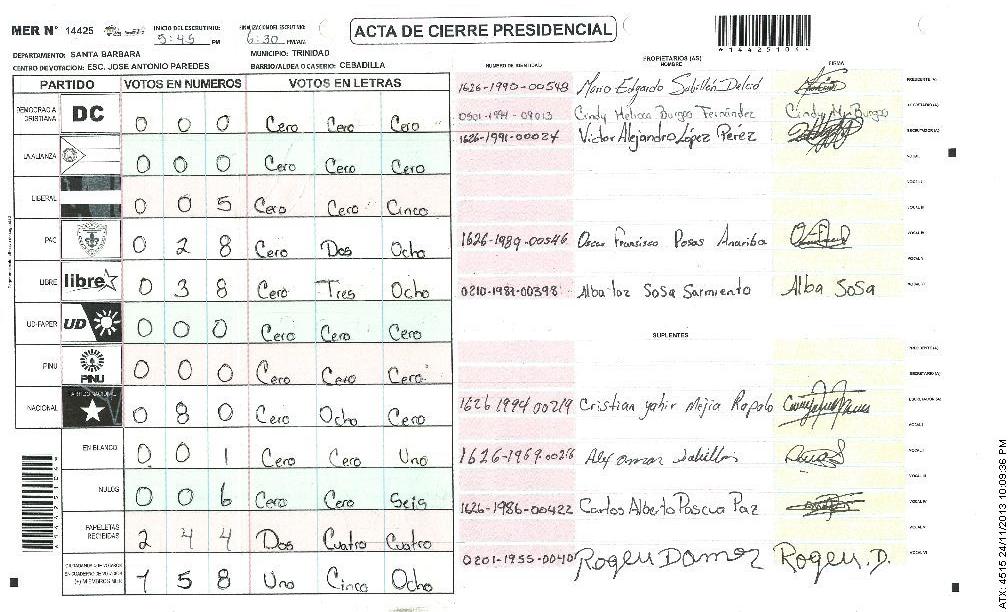 MER N° 14425 INICIO DEL ESCRUTINIO: 5:45 PM FINALIZACION DEL ESCRUTINIO: 6:30 PM/AM
ACTA DE CIERRE PRESIDENCIAL
DEPARTAMENTO: SANTA BARBARA MUNICIPIO: TRINIDAD
CENTRO DE VOTACION: ESC. JOSE ANTONIO PAREDES BARRIO/ALDEA O CASERIO: CEBADILLA
PARTIDO VOTOS EN NUMEROS VOTOS EN LETRAS
DEMOCRACIA CRISTIANA DC 0 0 0 Cero Cero Cero
LA ALIANZA 0 0 0 Cero Cero Cero
LIBERAL 0 0 5 Cero Cero Cinco
PAC 0 2 8 Cero Dos Ocho
LIBRE libre 0 3 8 Cero Tres Ocho
UD-FAPER UD 0 0 0 Cero Cero Cero
PINU PINU 0 0 0 Cero Cero Cero
NACIONAL PARTIDO NACIONAL 0 8 0 Cero Ocho Cero
EN BLANCO 0 0 1 Cero Cero Uno
NULOS 0 0 6 Cero Cero Seis
PAPELETAS RECIBIDAS 2 4 4 Dos Cuatro Cuatro
(+) MIEMBROS MER 1 5 8 Uno Cinco Ocho
PROPIETARIOS (AS)
NUMERO DE IDENTIDAD NOMBRE FIRMA
1626-1990-00548 Mario Edgardo Sabillón PRESIDENTE (A)
0501-1991-09013 Cindy Melissa Burgos Fernández Cindy Burgos SECRETARIO (A)
1626-1991-00024 Victor Alejandro López Perez ESCRUTADOR (A)
VOCAL I
VOCAL II
VOCAL III
1626-1989-00546 Oscar Fransisco Posas Anariba VOCAL IV
VOCAL V
0210-1981-00398 Alba luz Sosa Sarmiento Alba Sosa VOCAL VI
SUPLENTES
PRESIDENTE (A)
SECRETARIO (A)
1626 1994 00219 Cristian yahir Mejia Rapalo ESCRUTADOR (A)
VOCAL I
1626-1969-00216 Alex omar Sabillon
VOCAL III
1626-1986-00422 Carlos Alberto Pascua Paz VOCAL IV
VOCAL V
0201-1955-0040 Roger Roger. D. VOCAL VI
ATX: 4515 24/11/2013 10:09:36 PM